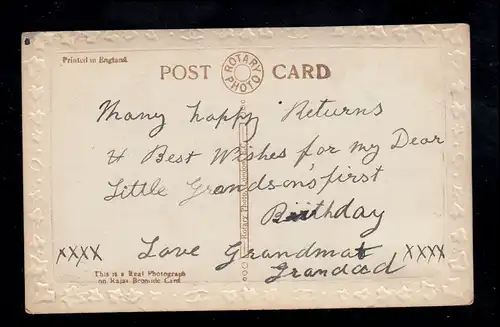 Printed in England.
POST CARD
ROTARY PHOTO
Many happy Returns
& Best Wishes for my Dear
Little Grandson's first
Birthday
Love Grandma &
Grandad
XXXX
XXXX
This is a Real Photograph
on Rajar Bromide Card.